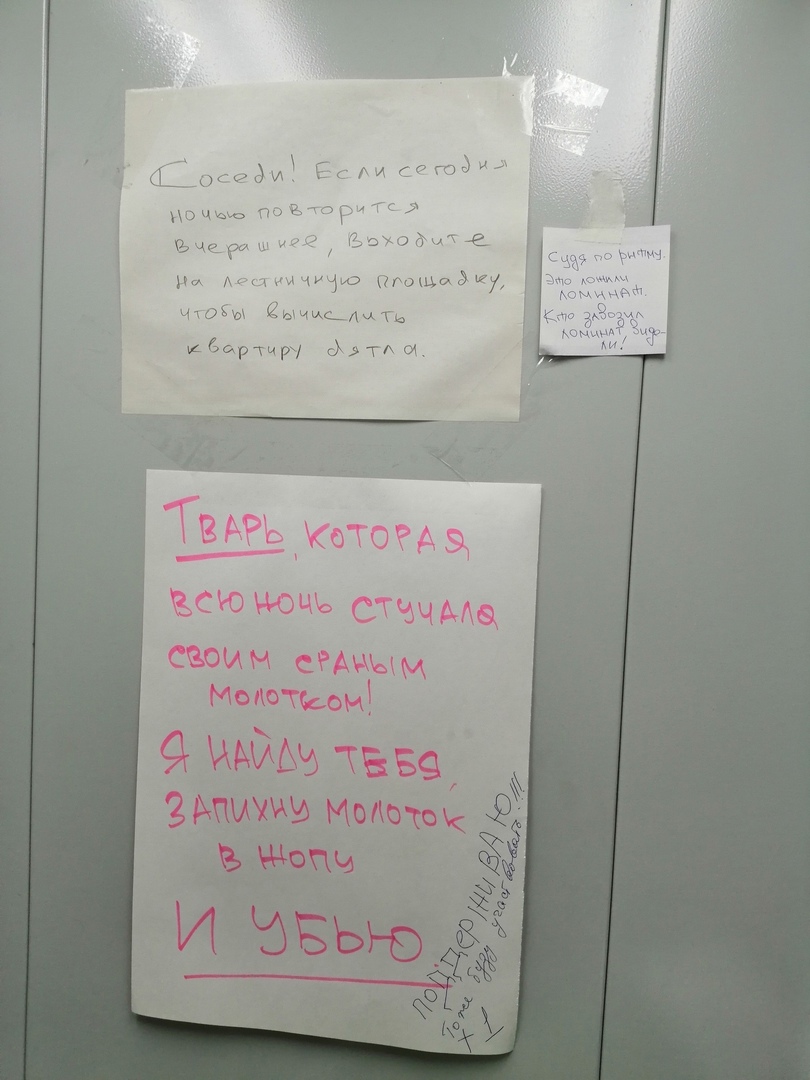 Соседи! Если сегодня
ночью повторится
вчерашнее, выходите
на лестничную площадку,
чтобы вычислить
квартиру дятла.
Судя по ритму.
Это ложили
ломинат.
Кто завозил
ломинат види-
ли!
Тварь, которая
всю ночь стучала
своим сраным
молотком!
Я найду тебя,
запихну молоток
в жопу
и убью
ПОДДЕРЖИВАЮ
Тоже буду участвовать!!!